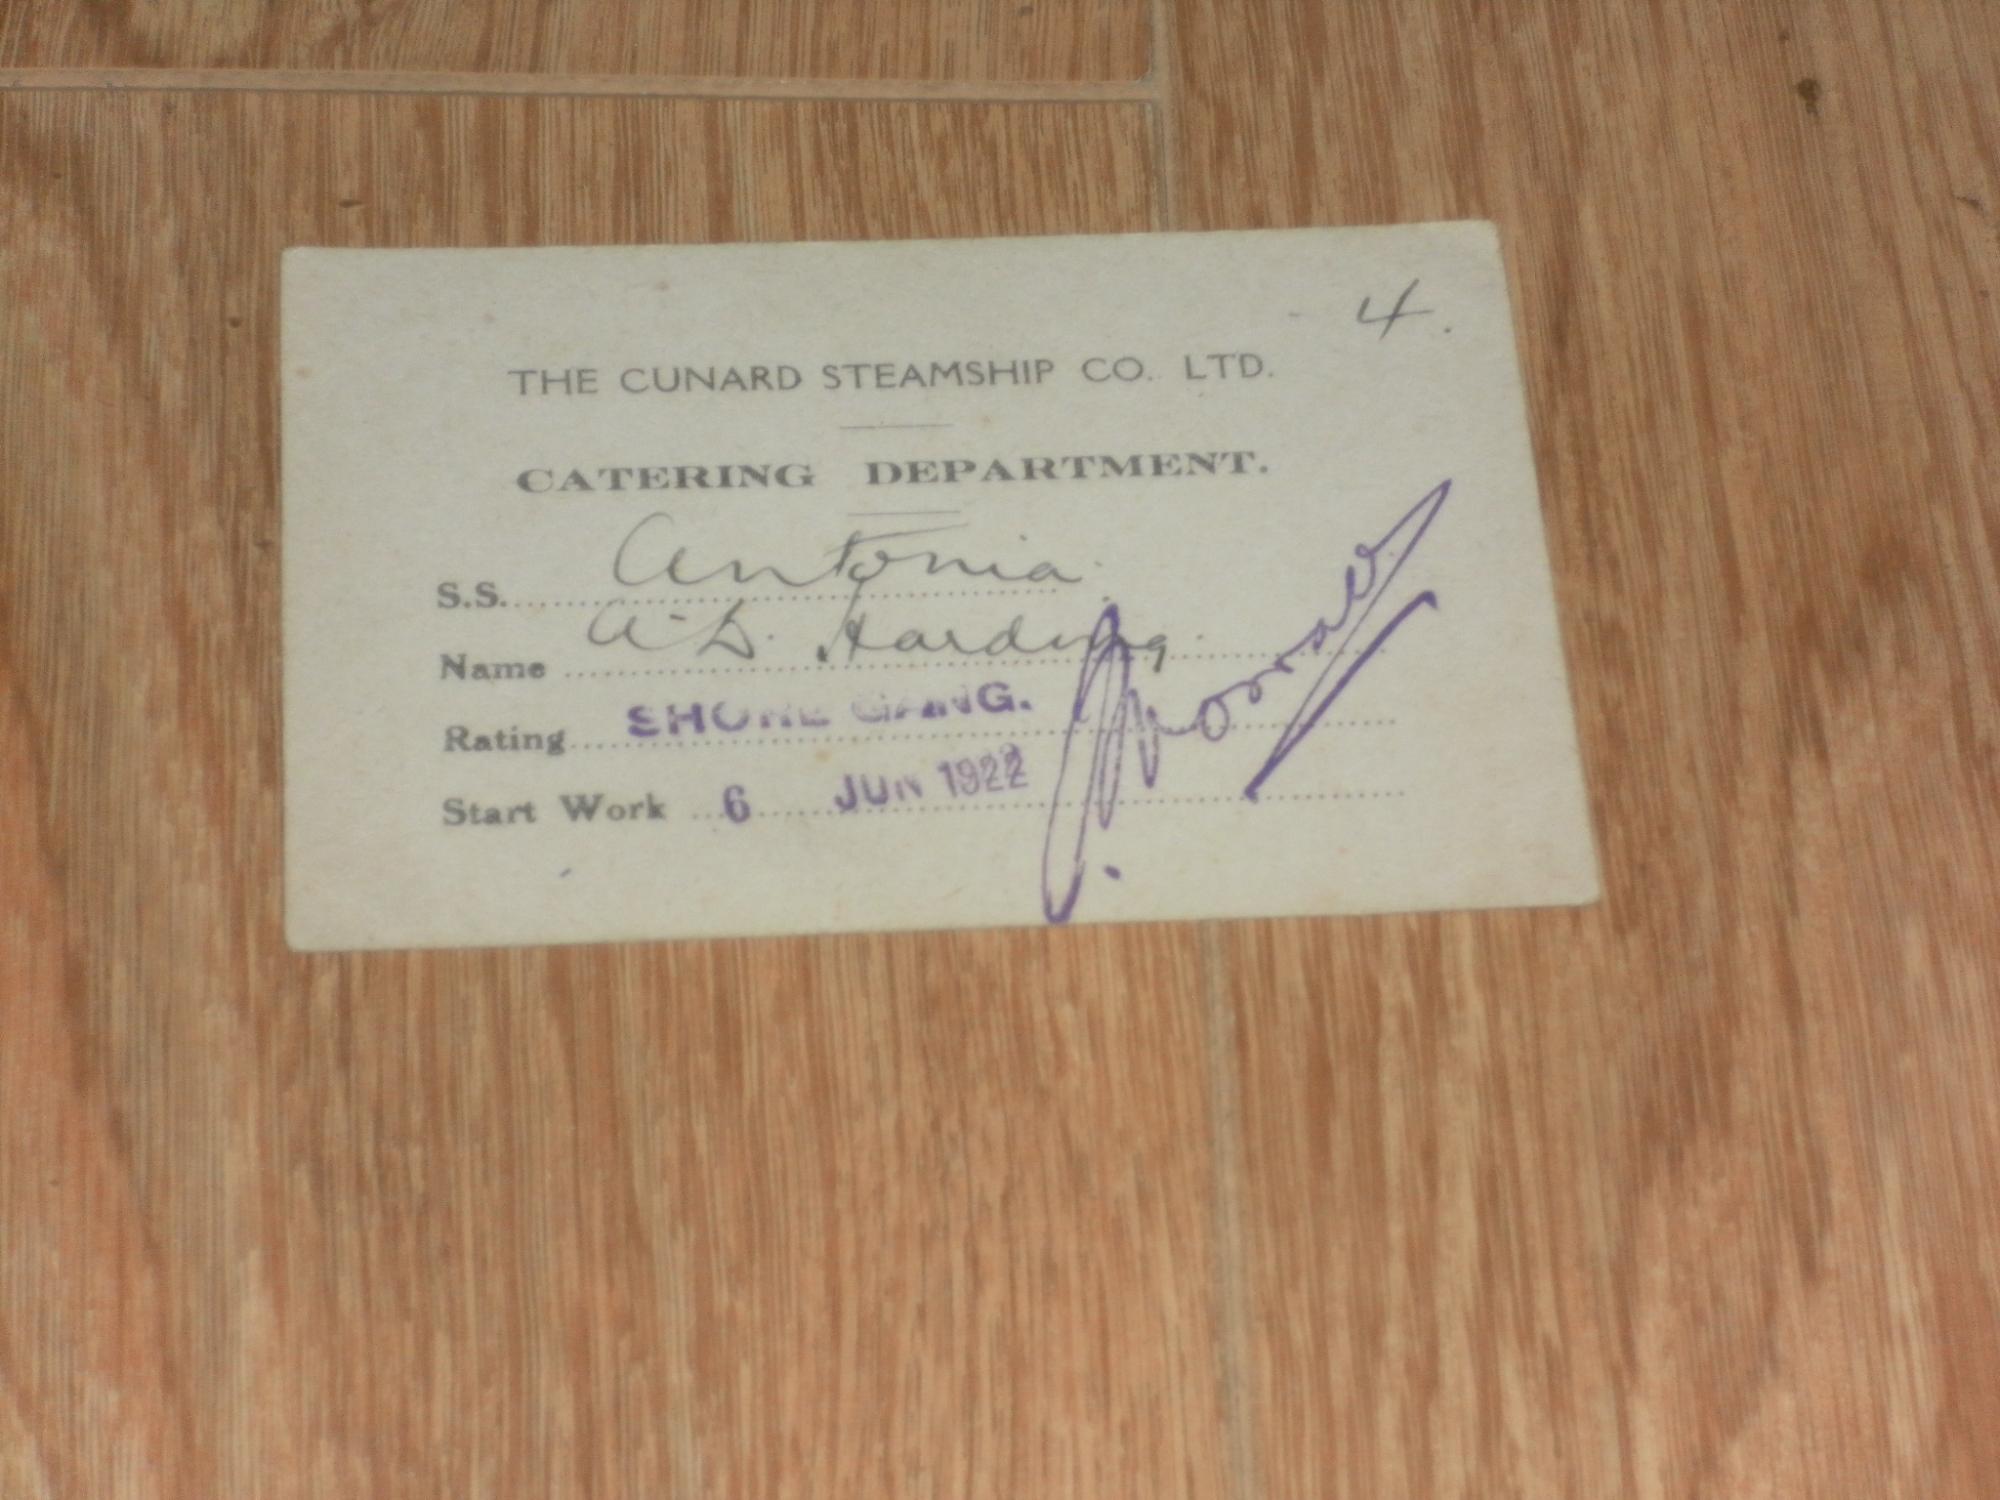 4.
THE CUNARD STEAMSHIP CO. LTD.
CATERING DEPARTMENT.
S.S. Antonia.
Name Harding.
Rating SHORE GANG.
Start Work 6 JUN 1922